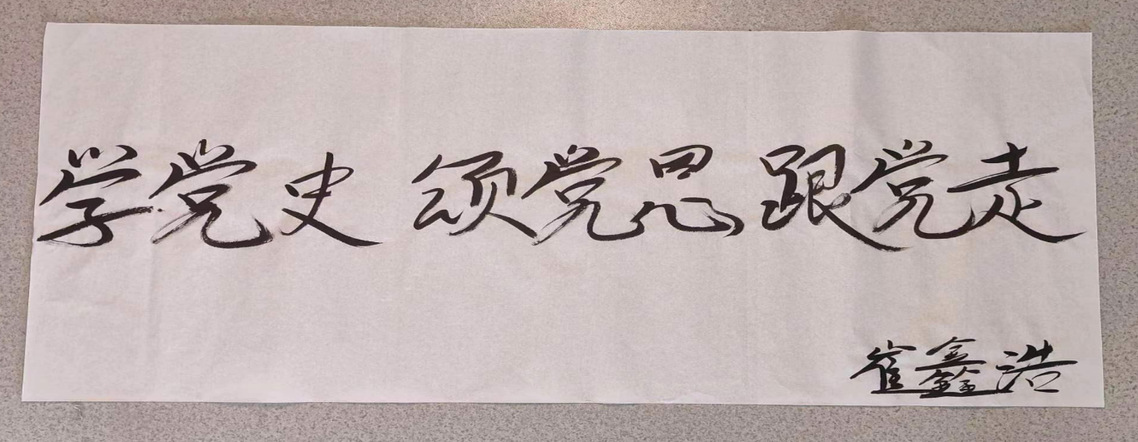 学党史 颂党恩 跟党走
崔鑫浩